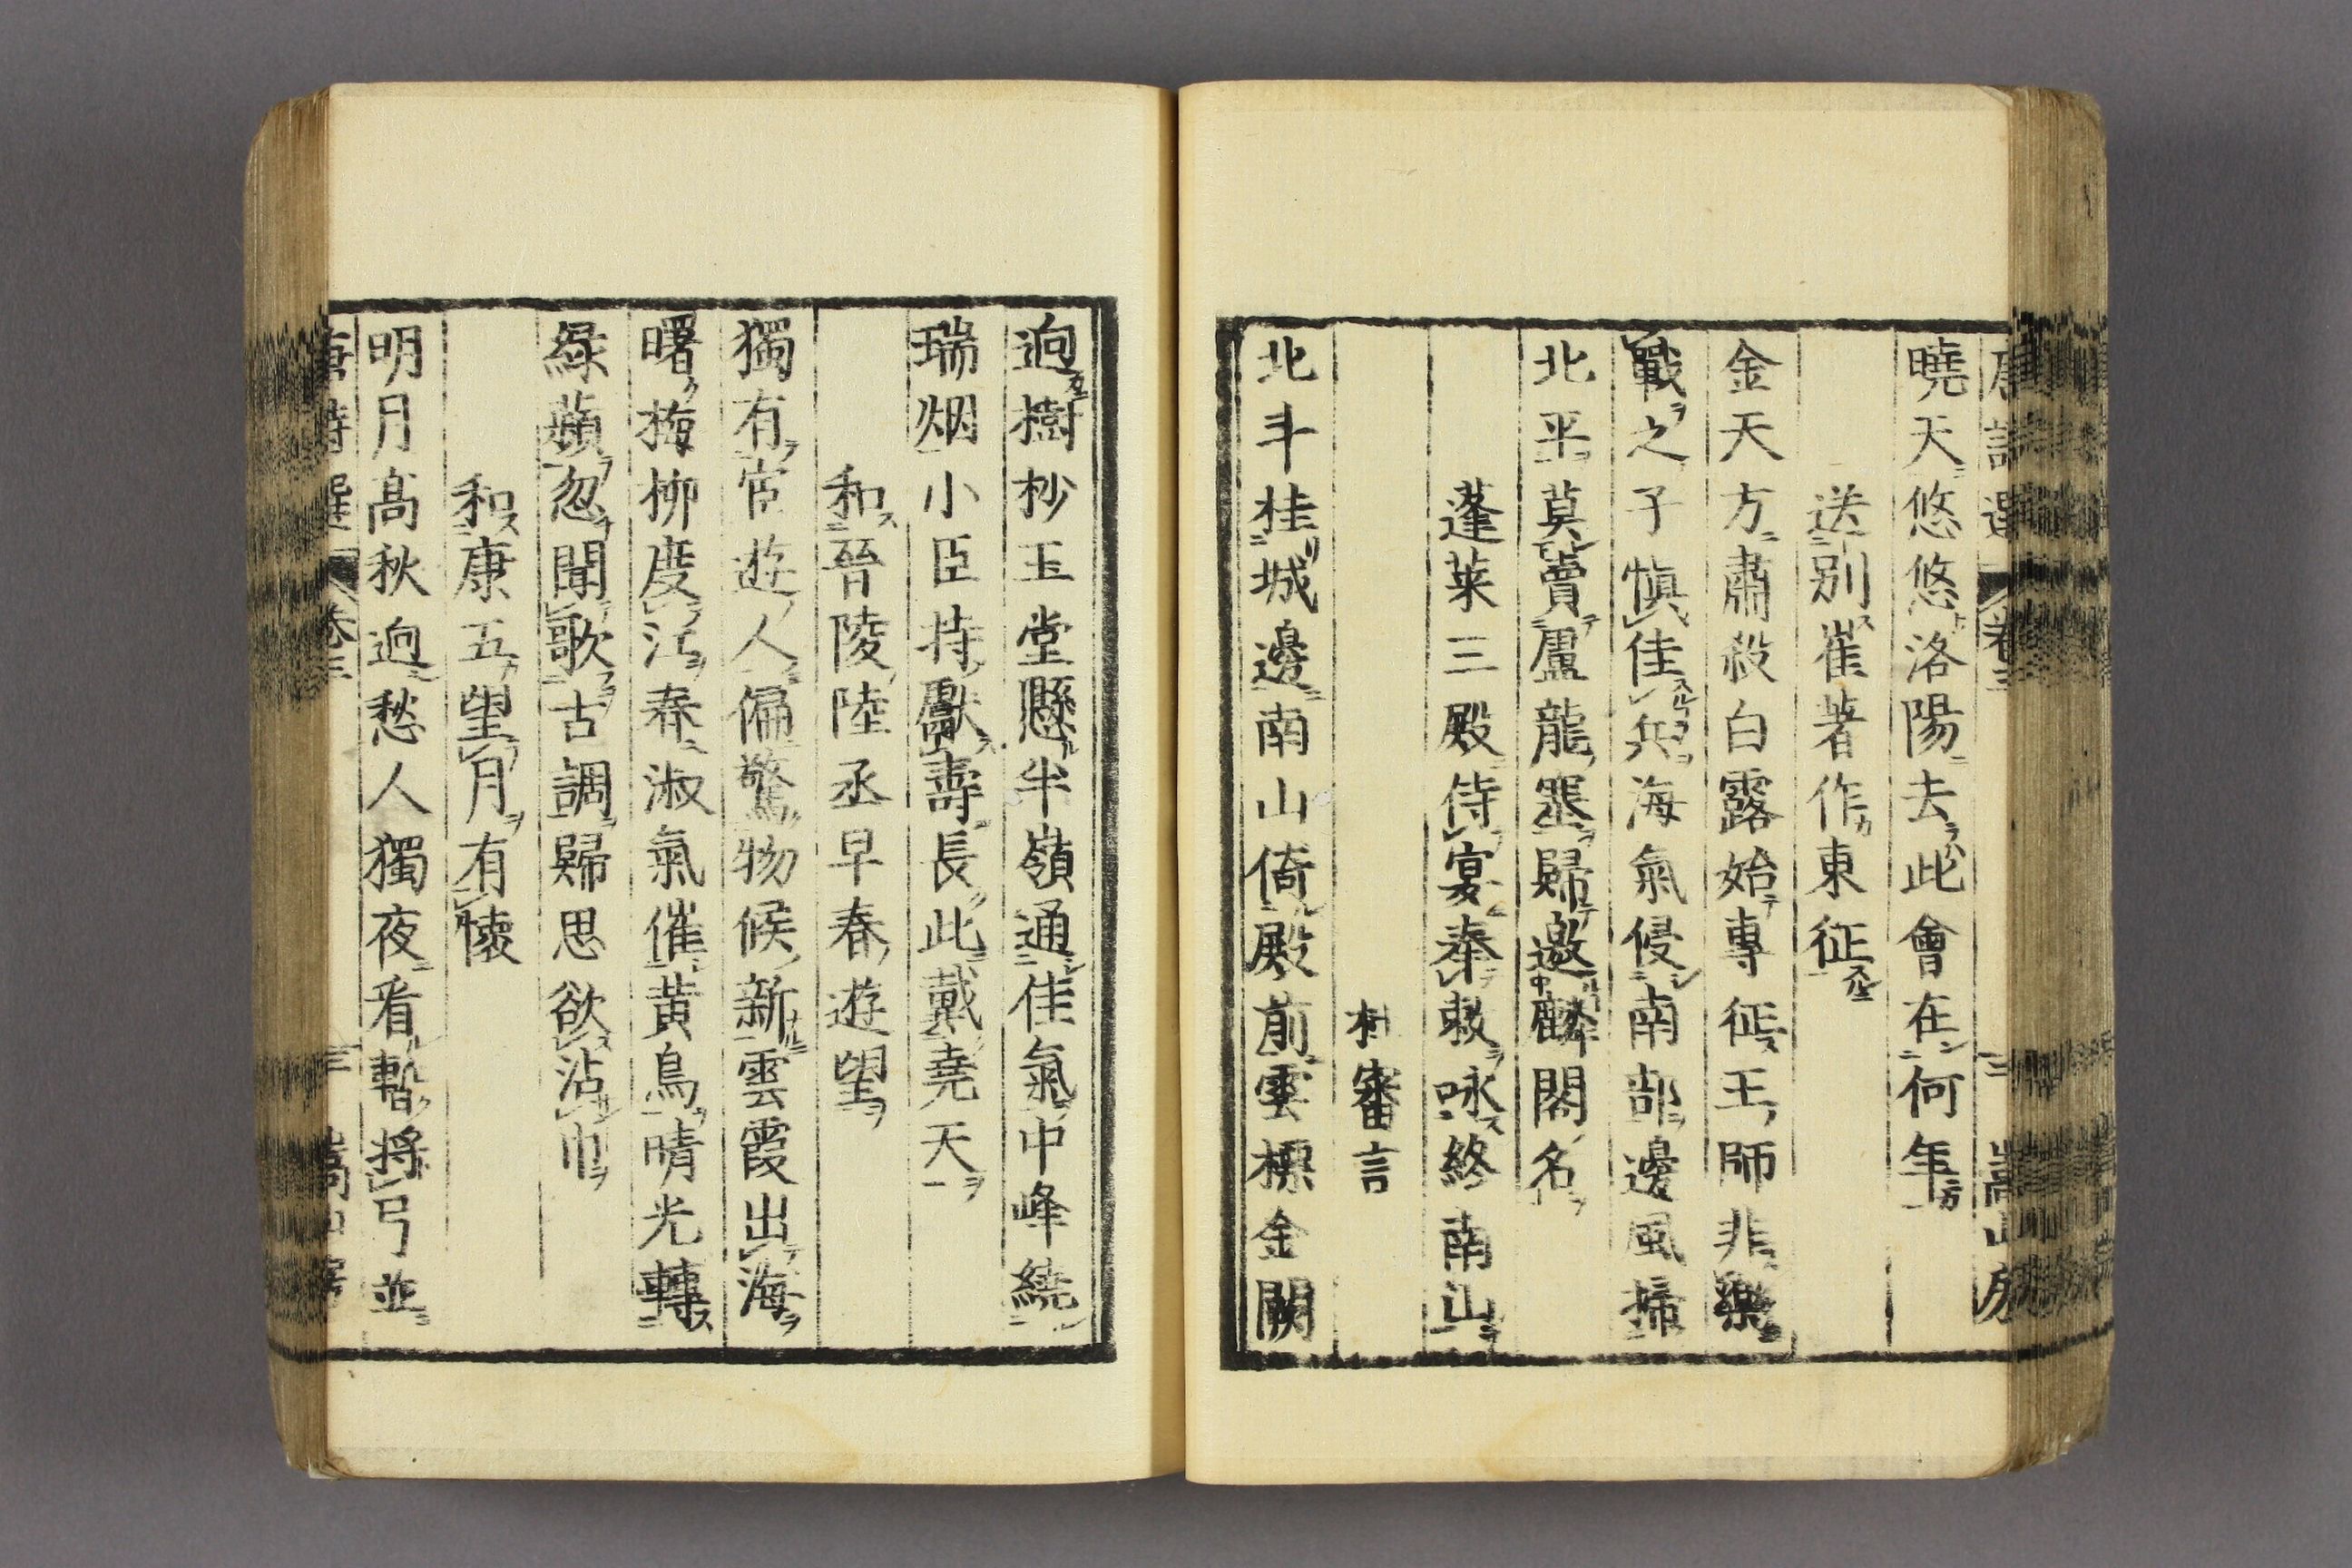 唐詩選 卷三 三 嵩山房
曉天悠悠洛陽去此會在何年
送別崔著作東征
金天方肅殺白露始專征王師非樂
戰之子愼佳兵海氣侵南部邊風掃
北平莫賣盧龍塞歸邀麟閣名
蓬萊三殿侍宴奉敕咏終南山
杜審言
北斗挂城邊南山倚殿前雲標金闕
逈樹杪玉堂懸半嶺通佳氣中峰繞
瑞烟小臣持獻壽長此戴堯天
和晉陵陸丞早春遊望
獨有宦遊人偏驚物候新雲霞出海
曙梅柳度江春淑氣催黃鳥晴光轉
綠蘋忽聞歌古調歸思欲沾巾
和康五望月有懷
明月高秋逈愁人獨夜看暫將弓並
唐詩選 卷三